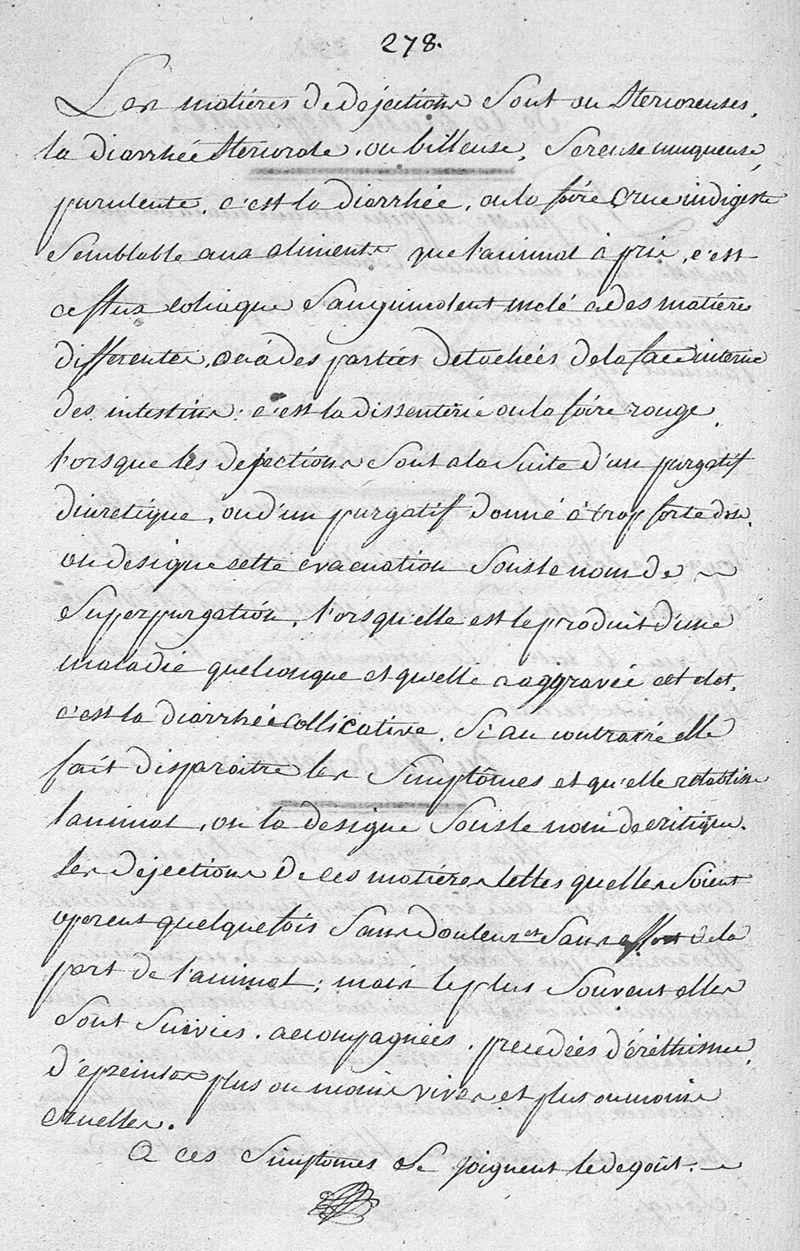 278.
Les matiéres de dejections sont ou stercoreuses,
la diarrhée stercorale, ou billeuse, sereuse muqueuse,
purulente, c'est la diarrhée, ou la foire crue indigeste
semblable aux aliments que l'animal à pris, c'est
ce flux coliaque sanguinolent melé a des matiére
differentes, ou à des parties detachées de la face interne
des intestins. c'est la dissenterie ou la foire rouge.
l'orsque les dejections sont a la suite d'un purgatif
diuretique, ou d'un purgatif donné à trop forte dose.
on designe cette evacuation sous le nom de
superpurgation, l'orsqu'elle est le produit d'une
maladie quelconque et quelle a aggravée cet etat,
c'est la diarrhée collicative. Si au contraire elle
fait disparaitre les simptômes et qu'elle retablisse
l'animal, on la designe sous le nom de critique.
les dejections de ces matieres telles quelles soient
operent quelquefois sans douleur et sans effort de la
part de l'animal; mais le plus souvent elles
sont suivies, accompagnées, precedées d'éréthisme,
d'epreintes plus ou moins vives et plus ou moins
cruelles.
A ces simptomes se joignent le degoût.